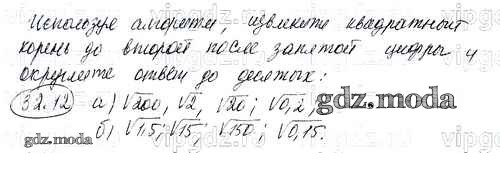 Используя алгоритм, извлеките квадратный
корень до второй после запятой цифры и
округлите ответ до десятых:
32.12 а) √200, √2, √20; √0,2,
б) √1,5; √15; √150; √0,15.
gdz.moda
gdz.moda